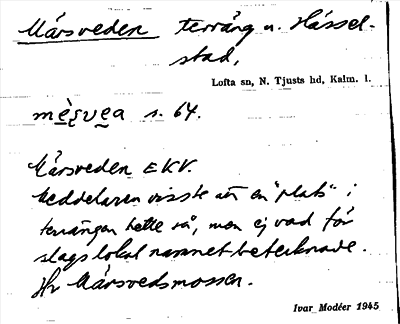 Mårsveden terräng u. Hässel-
stad,
Lofta sn, N. Tjusts hd, Kalm. l.
s. 64.
Mårsveden EKV.
Meddelaren visste att en "plats" i
terrängen hette så, men ej vad för
slags lokal namnet betecknade.
Hr Mårsvedsmossen.
Ivar Modéer 1945